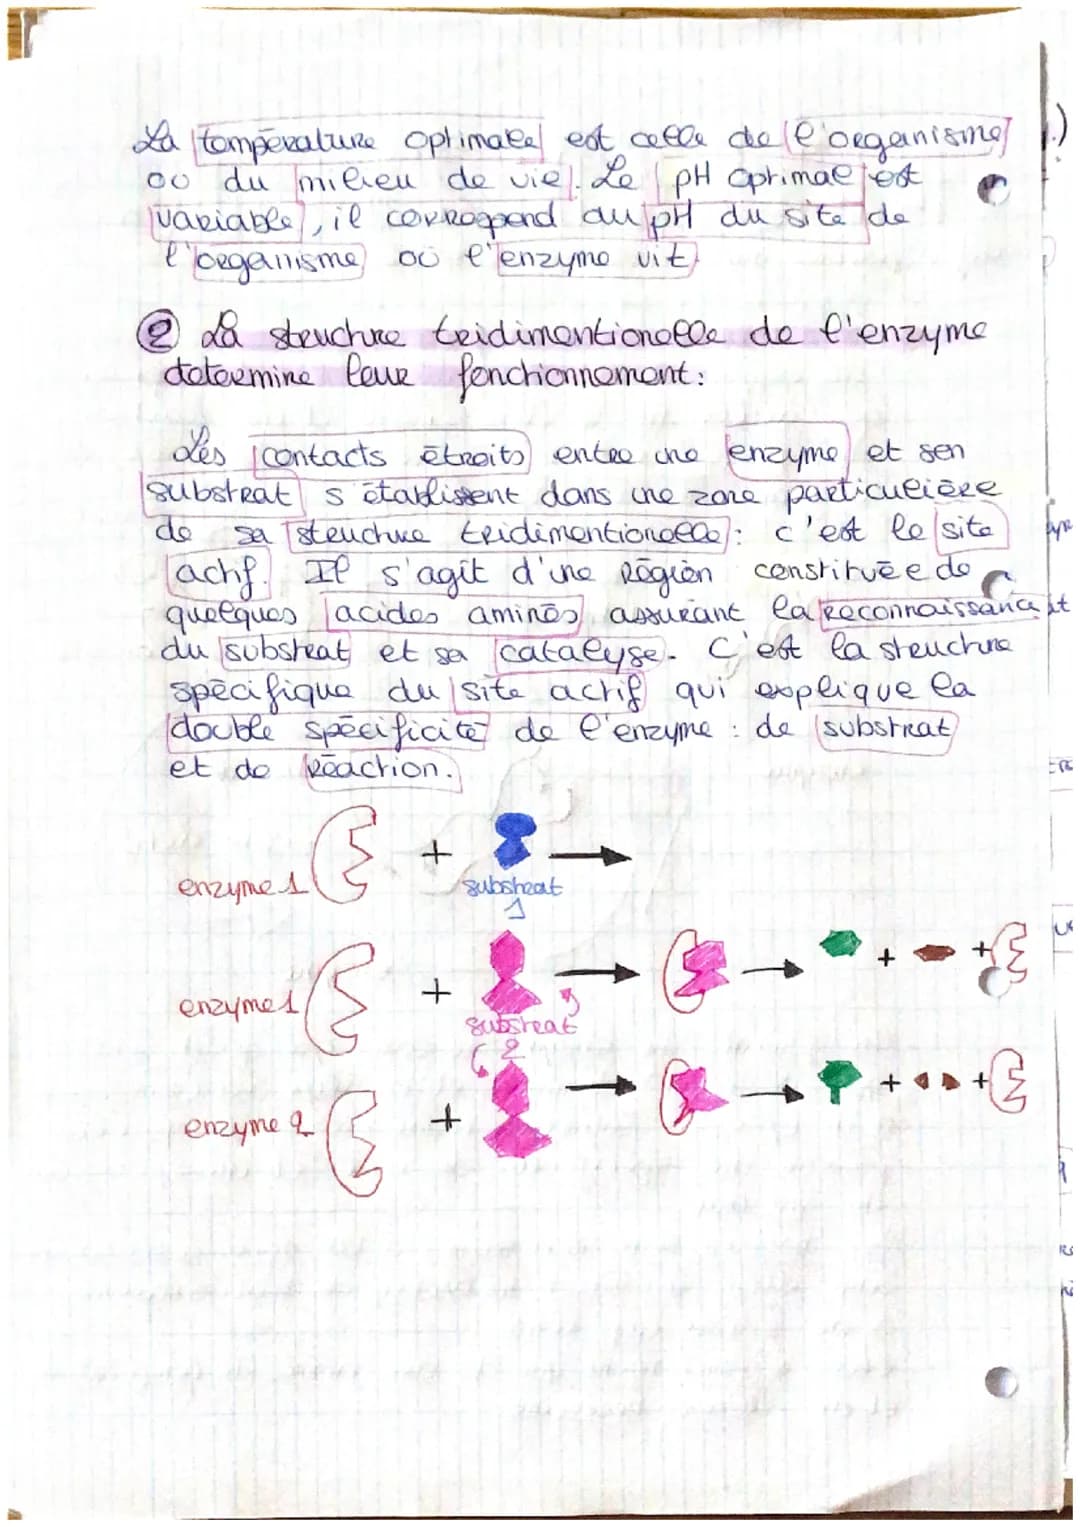 La température optimale est celle de l'organisme
ou du milieu de vie. Le pH optimal est
variable, il correspond au pH du site de
l'organisme où l'enzyme vit
② La structure tridimentionelle de l'enzyme
determine leur fonctionnement:
Les contacts étroits entre une enzyme et son
substrat s'établissent dans une zone particulière
de sa structure tridimentionelle: c'est le site
actif. Il s'agit d'une région constituée de
quelques acides aminés assurant la reconnaissance
du substrat et sa catalyse. C'est la structure
spécifique du site actif qui explique la
double spécificité de l'enzyme : de substrat
et de réaction.
enzyme 1 + substrat 1
enzyme 1 + substrat 2 + +
enzyme 2 + + +